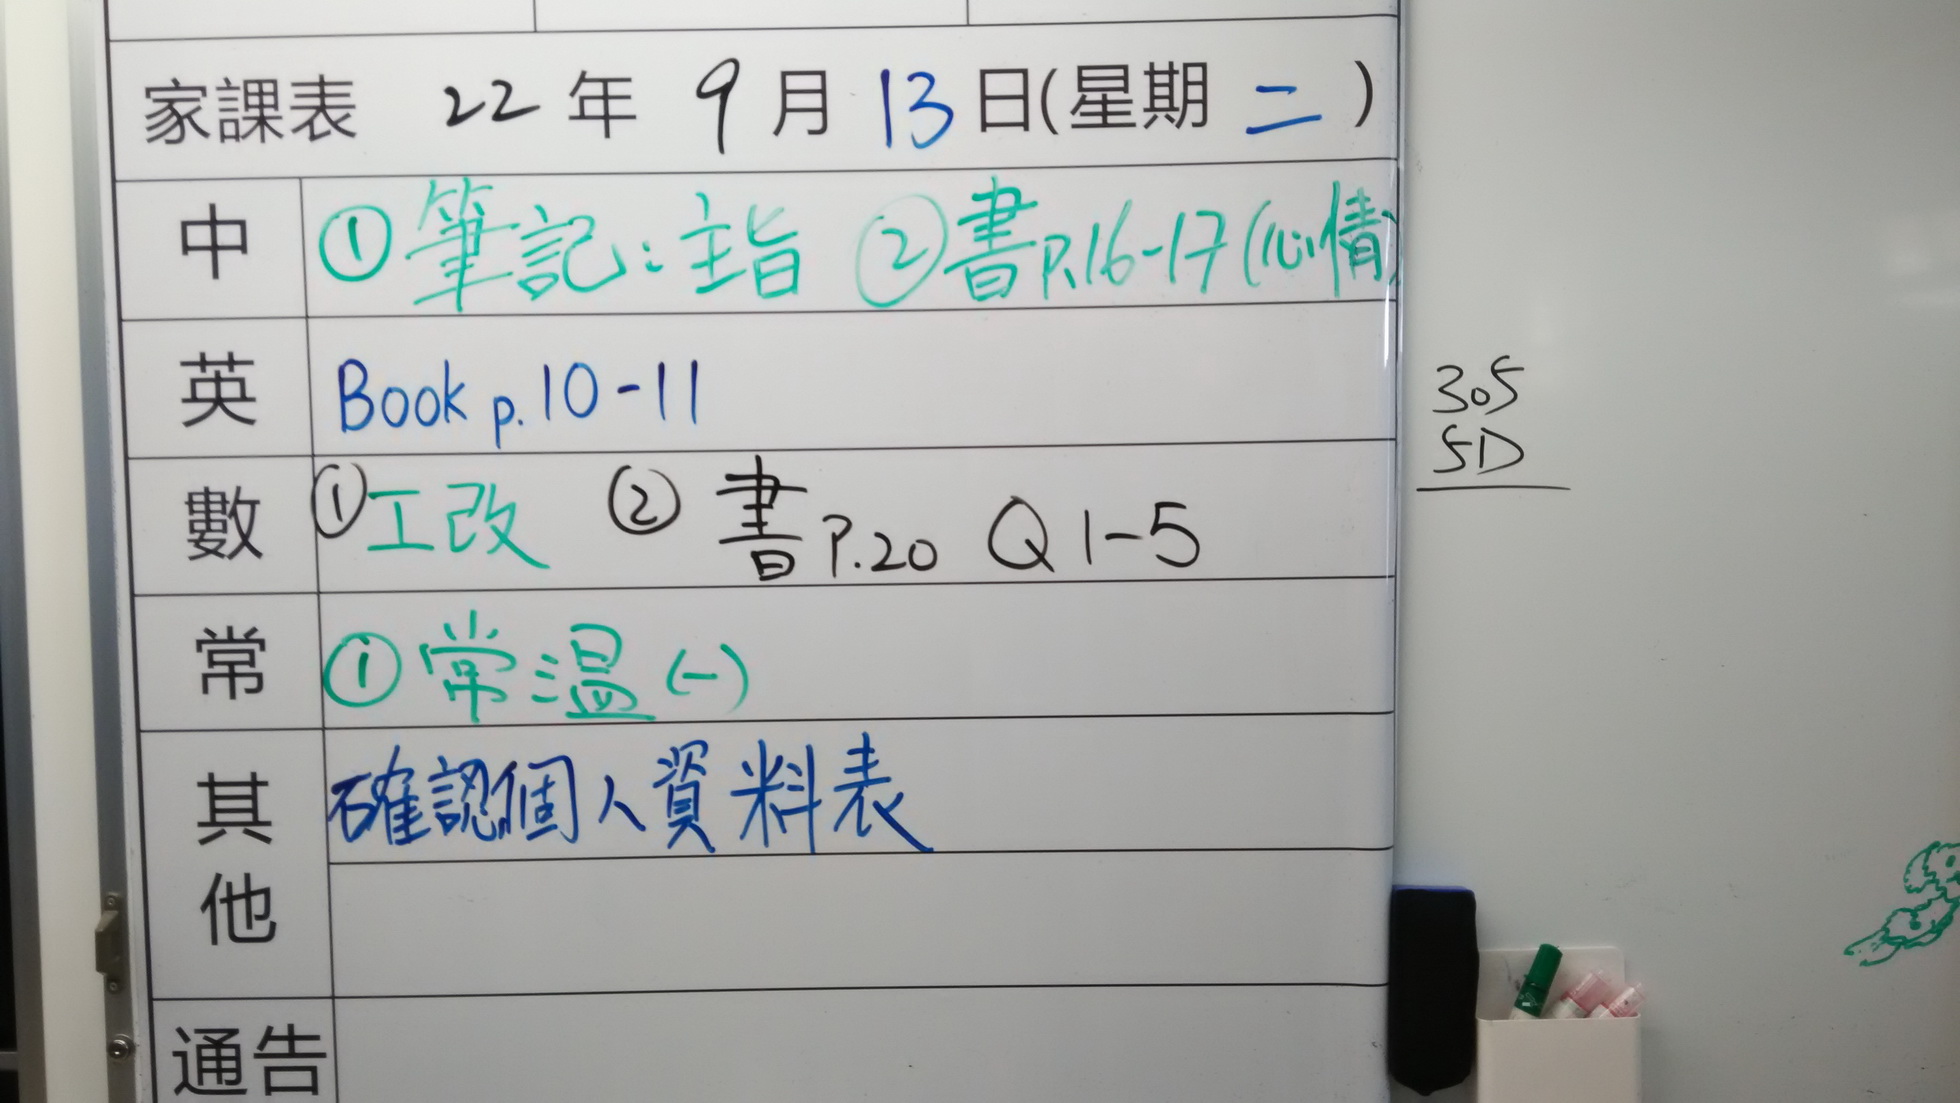 家課表 22 年 9 月 13 日(星期 二 )
中 ①筆記:主旨 ②書P.16-17(心情)
英 Book p.10-11
305
5D
數 ①工改 ② 書 P.20 Q1-5
常 ①常溫(一)
其他 確認個人資料表
通告